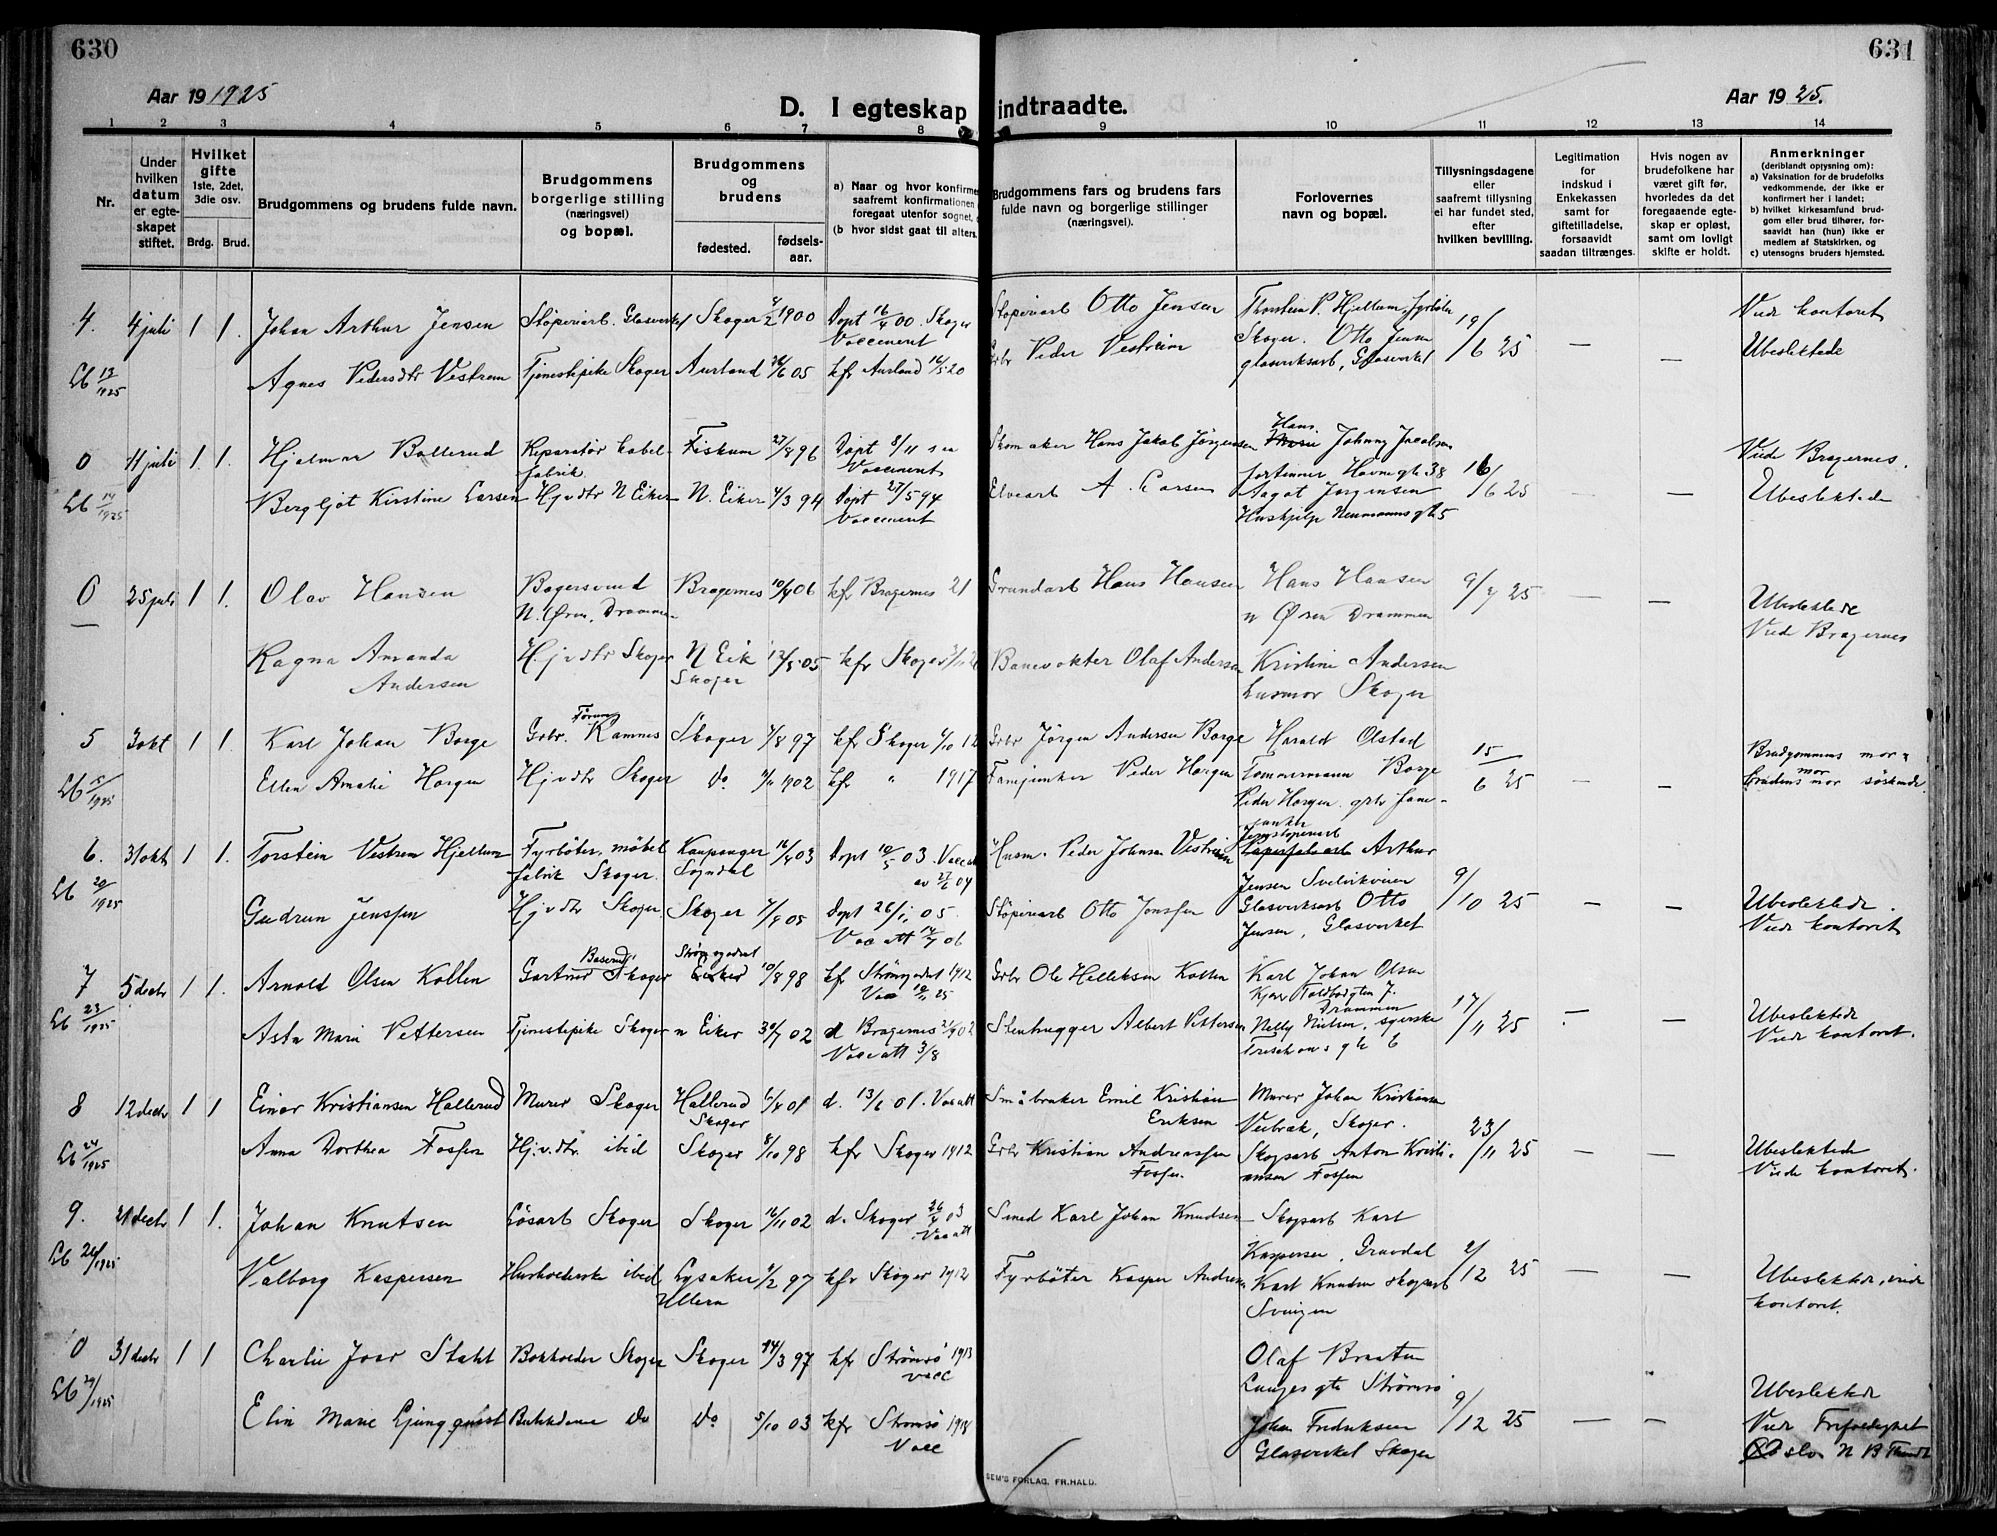 630
631
Aar 19 1925
D. I egteskap indtraadte.
Aar 19 25.
1 2 3 4 5 6 7 8 9 10 11 12 13 14
Nr.
Under hvilken datum er egteskapet stiftet.
Hvilket gifte 1ste, 2det, 3die osv.
Brdg. Brud.
Brudgommens og brudens fulde navn.
Brudgommens borgerlige stilling (næringsvei) og bopæl.
Brudgommens og brudens
fødested. fødselsaar.
a) Naar og hvor konfirme
saafremt konfirmationen
foregaat utenfor sognet,
(b hvor sidst gaat til alters.
Brudgommens fars og brudens fars fulde navn og borgerlige stillinger (næringsvei).
Forlovernes navn og bopæl.
Tillysningsdagene eller saafremt tillysning ei har fundet sted, efter hvilken bevilling.
Legitimation for indskud i Enkekassen samt for giftetilladelse, forsaavidt saadan tiltrænges.
Hvis nogen av brudefolkene har været gift før, hvorledes da det foregaaende egteskap er opløst, samt om lovligt skifte er holdt.
Anmerkninger
(deriblandt oplysning om):
a) Vaksination for de brudefolks vedkommende, der ikke er konfirmert her i landet;
b) hvilket kirkesamfund brudgom eller brud tilhører, forsaavidt han (hun) ikke er medlem av Statskirken, og
c) utensogns bruders hjemsted.
4. 4 juli 1 1. Johan Arthur Jensen Støperiarb. Glasverket Skoger 4/2 1900 Døpt 16/4 00. Skoger Støperiarb Otto Jensen Thorstein P. Hjellum, fyrbøter
Vaccinert Skoger. Otto Jensen 19/6 25 — — Viede kontoret
Lb 13/1925 Agnes Pedersdtr Vestrem Tjenestepike Skoger Aurland 26/6 05 kfr Aurland 16/5 20 Gbr Peder Vestreim glasverksarb, Glasverket Ubeslektede
0 11 juli 1. 1. Hjalmar Bollerud Reparatør kabelfabrik Fiskum 27/8 96 Døpt 8/11 s aa Skomaker Hans Jakob Jørgensen Hans Johnny Jacobsen
Vaccinert fortinner Havnegt. 38 16/6 25 — — Viede Bragernes.
Lb 14/1925 Bergljot Kirstine Larsen Hjvdtr N Eiker N. Eiker 4/3 94 Døpt 27/5 94 Elvearb A. Larsen Aagot Jørgensen Ubeslektede
Vaccinert Hushjelp Neumannsgt 5
0 25 juli 1 1. Olav Hansen Bragernes 10/4 06 kfr Bragernes 21 Grundarb Hans Hansen Hans Hansen 9/7 25 — —
N. Øren, Drammen n Øren Drammen Ubeslektede
Viede Bragernes
Ragna Amanda Hjvdtr Skoger N Eik 13/5 05 kfr Skoger Banevokter Olaf Andersen Kristine Andersen
Andersen Skoger Skoger
5 3 okt 1 1. Karl Johan Borge Gbr. Skoger 7/8 97 kfr Skoger 1/10 12 Gbr Jørgen Andersen Borge Harald Olstad 15/6 25 — — Brudgommens mor
Lb 15/1925 Ellen Amalie Horgen Hjvdtr Skoger do. 1902 kfr " 1917 Peder Horgen Tømmermann Borge brudens mor søskende.
Peder Horgen gbr
6. 31 okt 1 1. Torstein Vestrem Hjellum Fyrbøter, møbel Kaupanger 16/4 03 Døpt 10/5 03. Husm. Peder Johnsen Vestreim Arthur
fabrik Skoger. Sogndal Jensen Svelvikveien 9/10 25 — —
Lb 20/1925 Gudrun Jenssen Hjvdtr Skoger. Skoger 7/9 05 Døpt 26/1. 05. Støperiarb Otto Jenssen Glasverksarb Otto Ubeslektede.
Vac att 14/7 06 Jensen, Glasverket Viede kontoret
7 5 decbr 1 1. Arnold Olsen Kollen Gartner Skoger Eiker 10/8 98 kfr Strømsgodset 1912 Gbr Ole Helleksen Kollen Karl Johan Olsen
Toldbodgten 7. Drammen 17/11 25 — —
Lb 23/1925 Asta Marie Pettersen Tjenestepike Skoger n Eiker 30/7 02 d Bragernes 02 Stenhugger Albert Pettersen Nelly Nielsen, syerske Ubeslektede
Vac att 3/8 Treschowsgt 6 Viede kontoret.
8 12 decbr 1 1 Einar Kristiansen Hallerud Murer Skoger Hallerud 6/4 01 d. 13/6 01. Vac att Småbruker Emil Kristian Murer Johan Kristiansen
Skoger Eriksen Skoger. 23/11 25 — —
Lb 24/1925 Anna Dorthea Fossen Hj.v.dtr. ibid Skoger 8/10 98 kfr Skoger 1912 Gbr Kristian Andreassen Skogsarb Anton Kristi- Ubeslektede
Fossen. ansen Fossen Viede kontoret.
9. 21 decbr 1 1. Johan Knutsen Løsarb Skoger Skoger 16/11 02 d. Skoger 26/4 03 Smed Karl Johan Knudsen Skogsarb Karl
Vac att Kaspersen, Gravdal 2/12 25 — —
Lb 26/1925 Valborg Kaspersen Husholderske ibid Lysaker 1/2 97 kfr Skoger 1912 Fyrbøter Kasper Karl Knudsen skogsarb Ubeslektede, viede
Ullern Svingen kontoret.
0 31 decbr 1 1 Charlie Stahl Bokholder Skoger Skoger 14/3 97 kfr Strømsø 1913 Olaf Braaten
vacc Langes gte Strømsø Ubeslektede
Lb 29/1925 Elin Marie Ljungquist Do Do 5/10 03 kfr Strømsø 1918 Johan Fredriksen 9/12 25 — — Viede Frifoldighet
Vacc Glasverket Skoger Oslo N B
SEM'S FORLAG. FR.HALD.